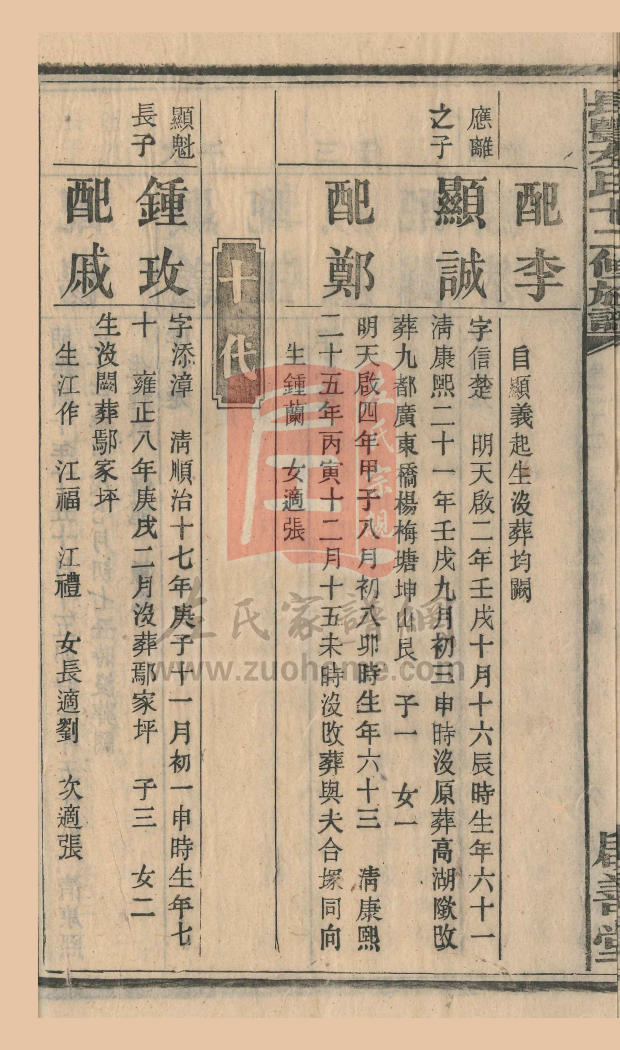 配李
自顯義起生沒葬均闕
應離
之子
顯誠
字信楚　明天啟二年壬戌十月十六辰時生年六十一
淸康熙二十一年壬戌九月初三申時沒原葬高湖墩改
葬九都廣東橋楊梅塘坤山艮　子一　女一
配鄭
明天啟四年甲子八月初八卯時生年六十三　淸康熙
二十五年丙寅十二月十五未時沒改葬與夫合塚同向
生鍾蘭　女適張
十代
顯魁
長子
鍾玫
字添漳　淸順治十七年庚子十一月初一申時生年七
十　雍正八年庚戌二月沒葬鄢家坪　子三　女二
配戚
生沒闕葬鄢家坪
生江作　江福　江禮　女長適劉　次適張
左氏家譜網
www.zuohome.com